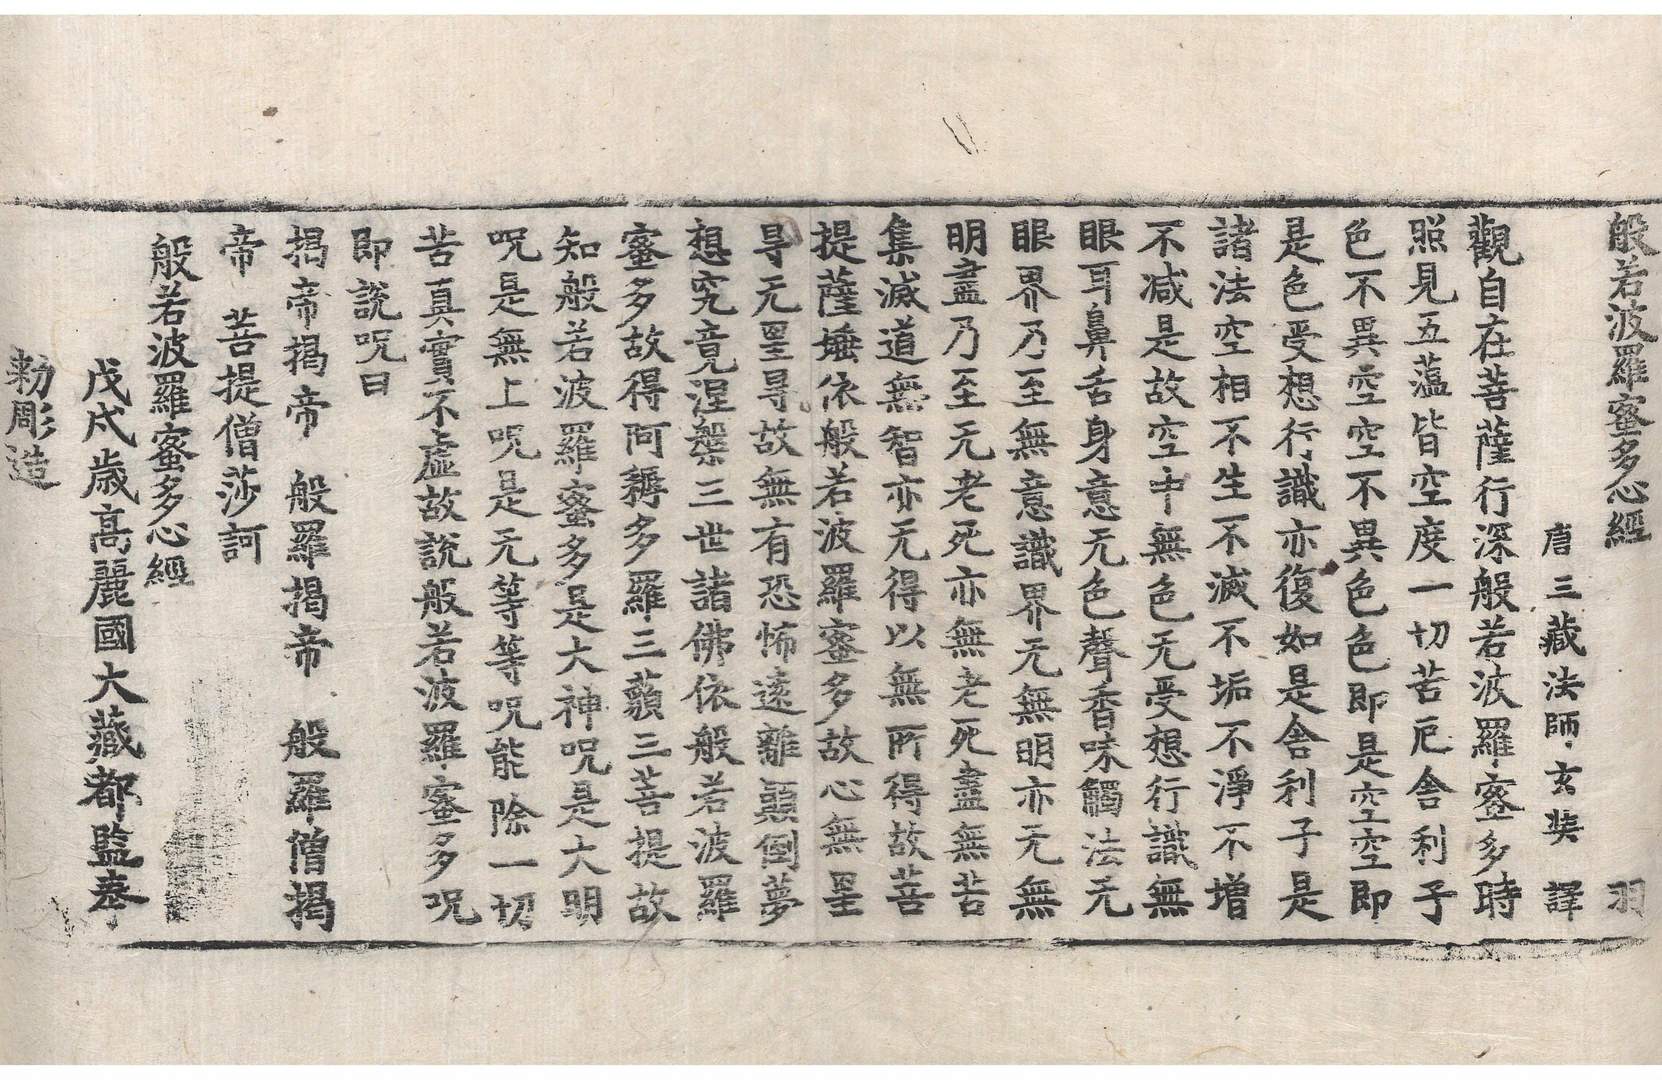 般若波羅蜜多心經 羽
唐三藏法師玄奘 譯
觀自在菩薩行深般若波羅蜜多時
照見五蕰皆空度一切苦厄舍利子
色不異空空不異色色即是空空即
是色受想行識亦復如是舍利子是
諸法空相不生不滅不垢不淨不增
不减是故空中無色无受想行識無
眼耳鼻舌身意无色聲香味觸法无
眼界乃至無意識界无無明亦无無
明盡乃至无老死亦無老死盡無苦
集滅道無智亦无得以無所得故菩
提薩埵依般若波羅蜜多故心無罣
㝵无罣㝵故無有恐怖遠離顚倒夢
想究竟涅槃三世諸佛依般若波羅
蜜多故得阿耨多羅三藐三菩提故
知般若波羅蜜多是大神呪是大明
呪是無上呪是无等等呪能除一切
苦真實不虛故說般若波羅蜜多呪
即說呪曰
揭帝揭帝 般羅揭帝 般羅僧揭
帝 菩提僧莎訶
般若波羅蜜多心經
戊戌歲高麗國大藏都監奉
勑彫造